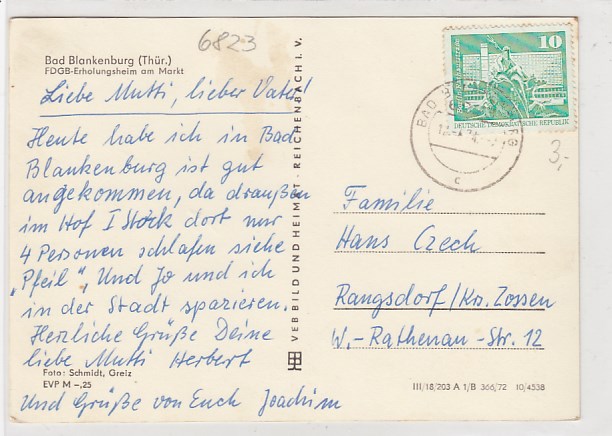 6823
Bad Blankenburg (Thür.)
FDGB-Erholungsheim am Markt
Liebe Mutti, lieber Vater!
Heute habe ich in Bad
Blankenburg ist gut
angekommen, da draußen
im Hof I Stock dort nur
4 Personen schlafen siehe
"Pfeil", Und Jo und ich
in der Stadt spazieren.
Herzliche Grüße Deine
liebe Mutti Herbert
Foto: Schmidt, Greiz
EVP M –,25
Und Grüße von Euch Joachim
VEB BILD UND HEIMAT · REICHENBACH i. V.
10
DEUTSCHE DEMOKRATISCHE REPUBLIK
BAD
c
3,-
Familie
Hans Czech
Rangsdorf/Kr. Zossen
W.-Rathenau-Str. 12
III/18/203 A 1/B 366/72 10/4538